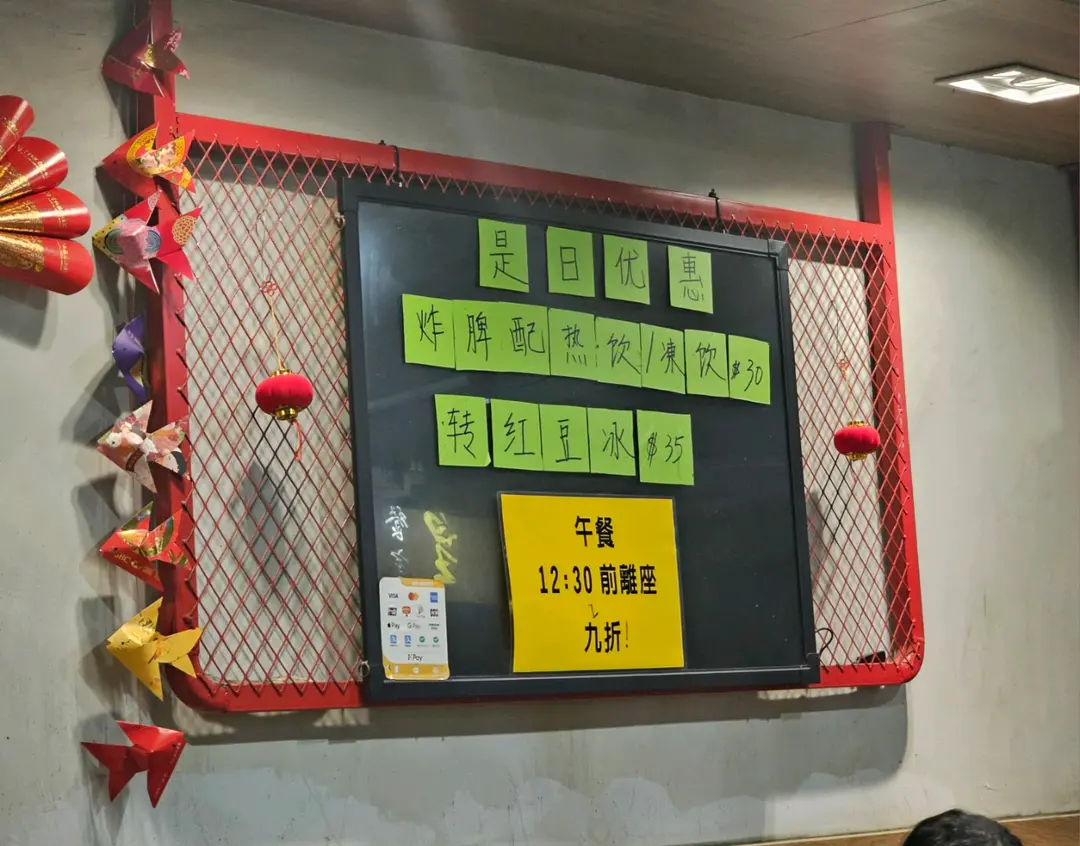 是日优惠
炸脾配热饮/凍饮$30
转红豆冰$35
午餐
12:30前離座
九折!
VISA
Pay
G Pay
Pay